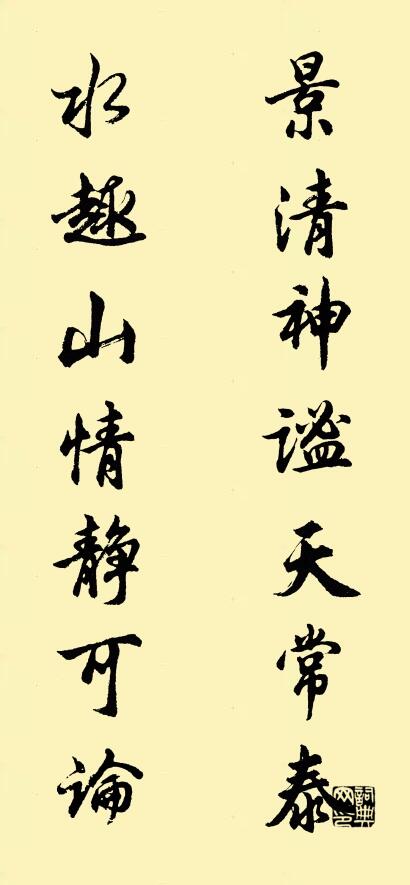 景清神谧天常泰
水趣山情静可论
詞典网